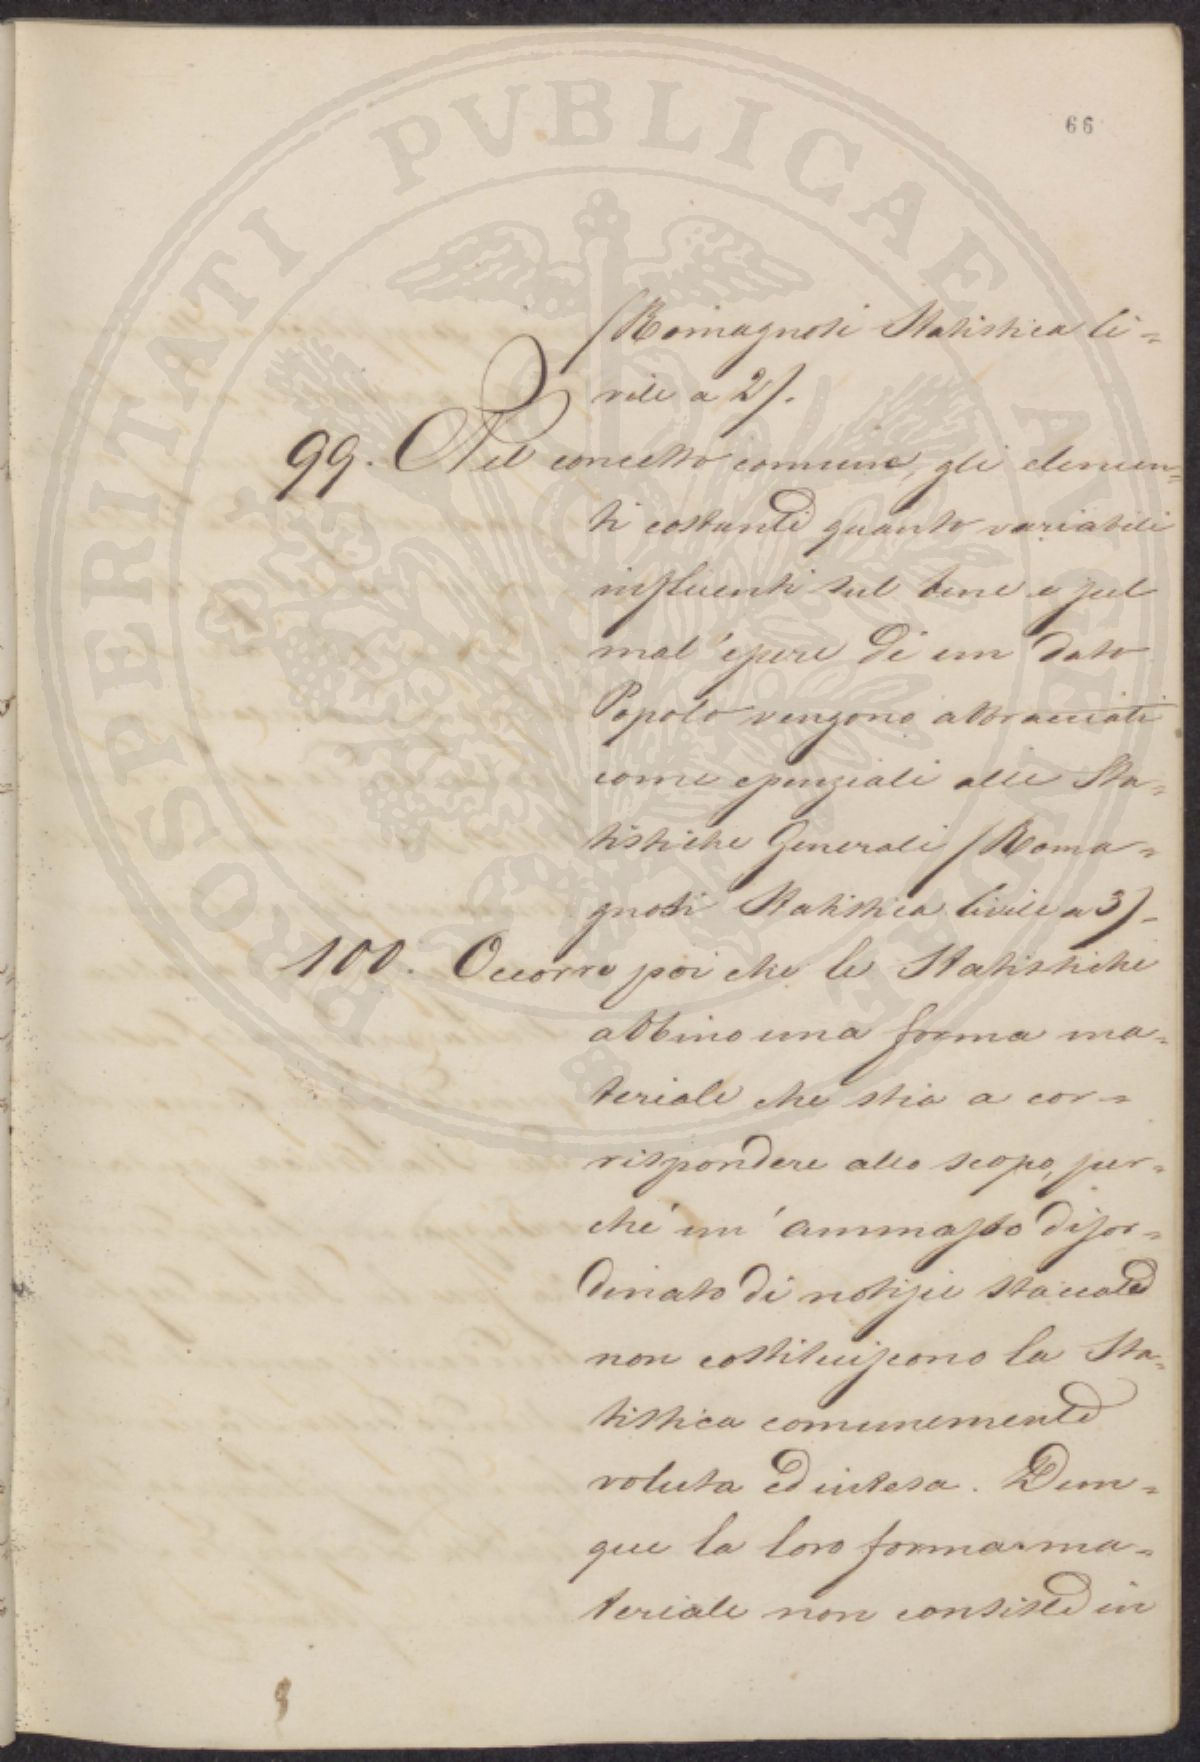 PROSPERITATI PUBLICAE AUGENDAE
66
(Romagnosi Statistica Ci=
vile a 2).
99. Nel concetto comune, gli elemen=
ti costanti quanto variabili
influenti sul bene e sul
mal'essere di un dato
Popolo vengono abbracciati
come essenziali alle Sta=
tistiche Generali (Roma=
gnosi Statistica Civile a 3).
100. Occorre poi che le Statistiche
abbino una forma ma=
teriale che stia a cor=
rispondere allo scopo, per=
ché un'ammasso disor=
dinato di notizie staccate
non costituiscono la Sta=
tistica comunemente
voluta ed intesa. Dun=
que la loro forma ma=
teriale non consiste in